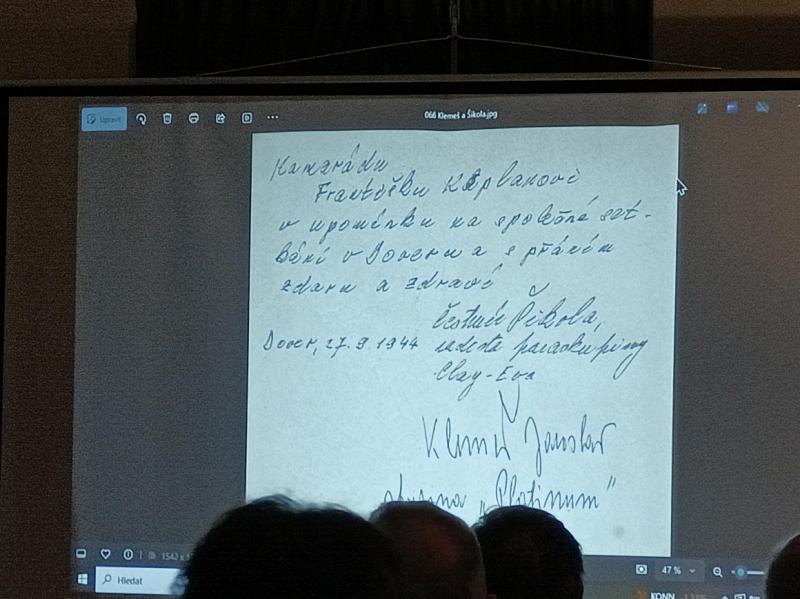 Upravit
066 Klemeš a Šikola.jpg
Kamarádu
Františku Kaplanovi
v upomínku na společné set-
kání v Doveru a s přáním
zdaru a zdraví
Čestmír Šikola,
Dover, 27. 9. 1944 velitel paraskupiny
Clay-Eva
Klemeš Jaroslav
skupina „Platinum"
1542 x
47 %
Hledat